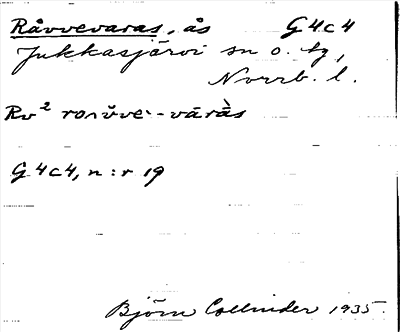 Råvvevaras, ås G4c4
Jukkasjärvi sn o. tg,
Norrb. l.
Rv² -vāràs
G4c4, n:r 19
Björn Collinder 1935.